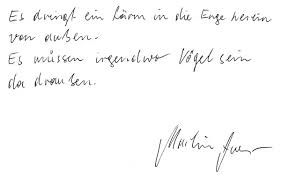 Es dringt ein Lärm in die Enge herein
von außen.
Es müssen irgendwo Vögel sein
da draußen.
Martin Auer